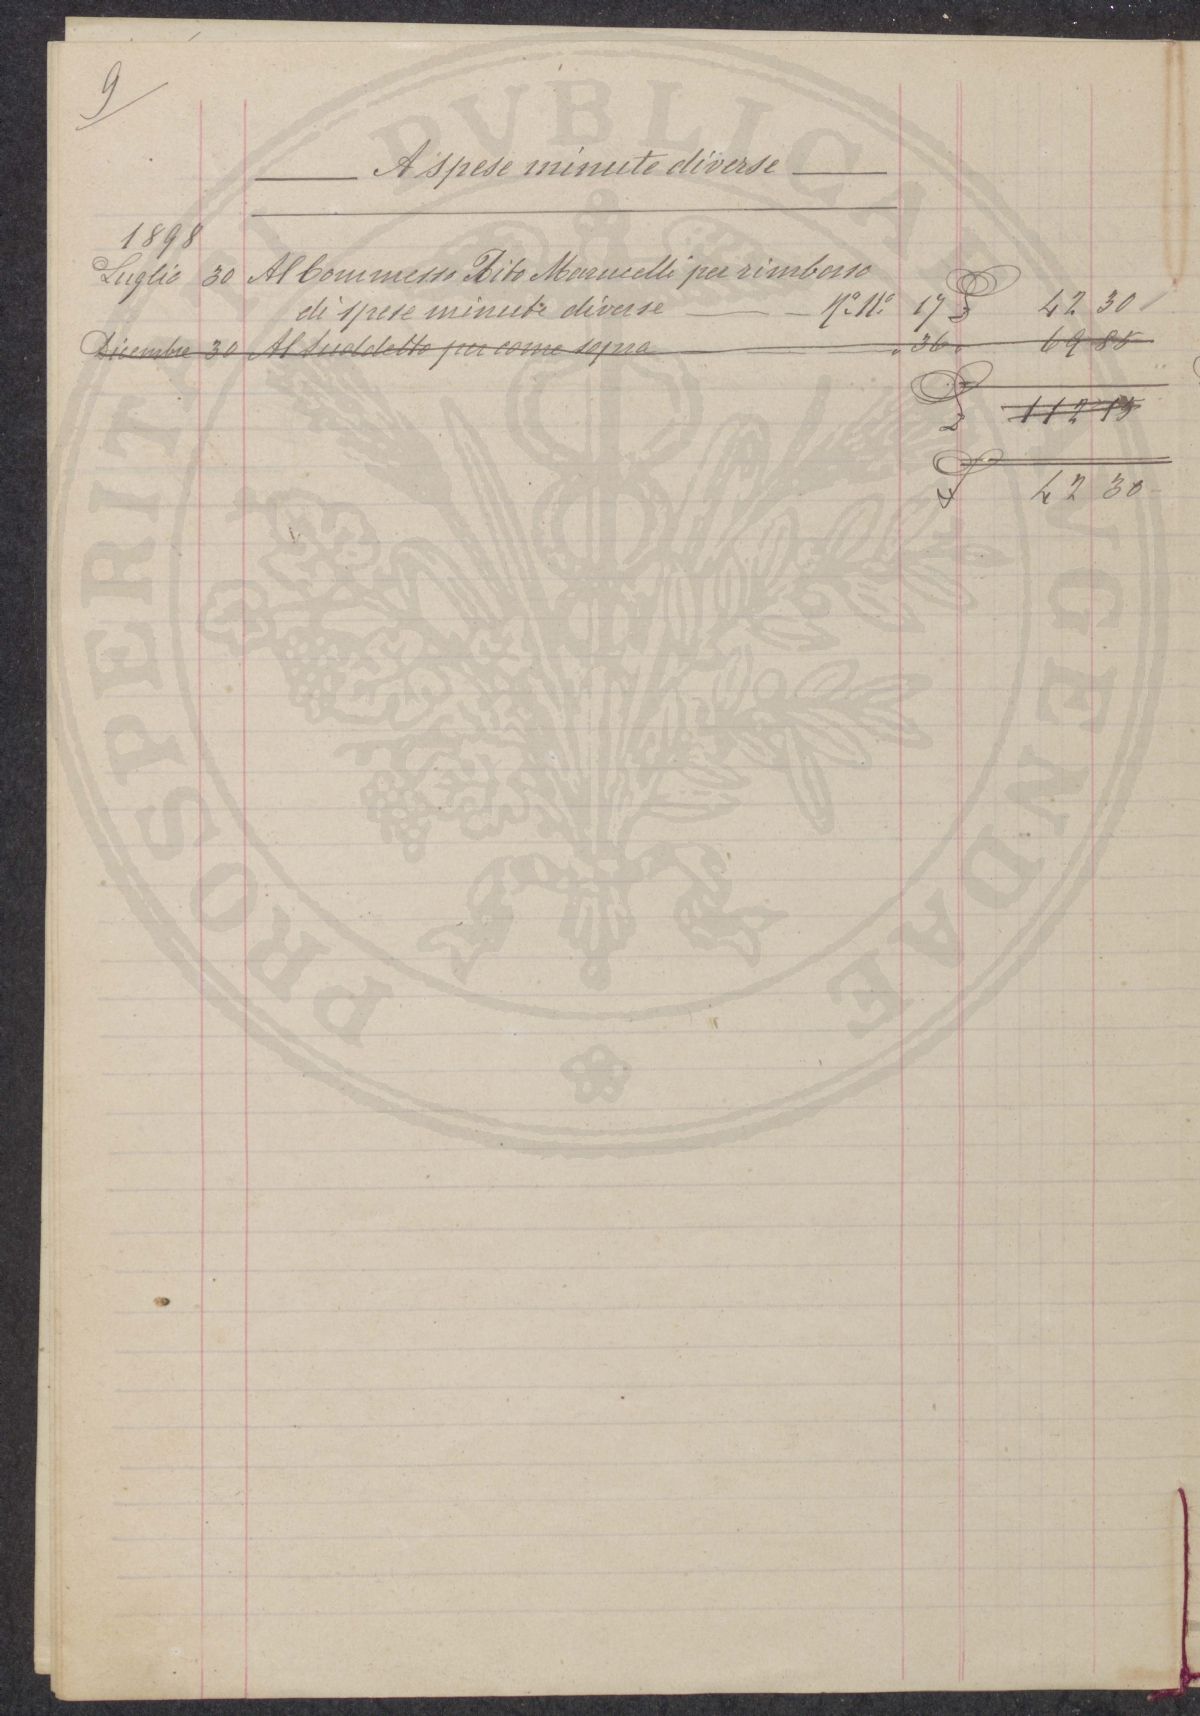 9
A spese minute diverse
1898
Luglio 30 Al Commesso Tito Marucelli per rimborso
di spese minute diverse N.º M.º 17 £ 42 30
Dicembre 30 Al Suddetto per come sopra " 36 " 69 85
£ 112 15
£ 42 30
PROSPERITATI PVBLICAE AVGENDAE